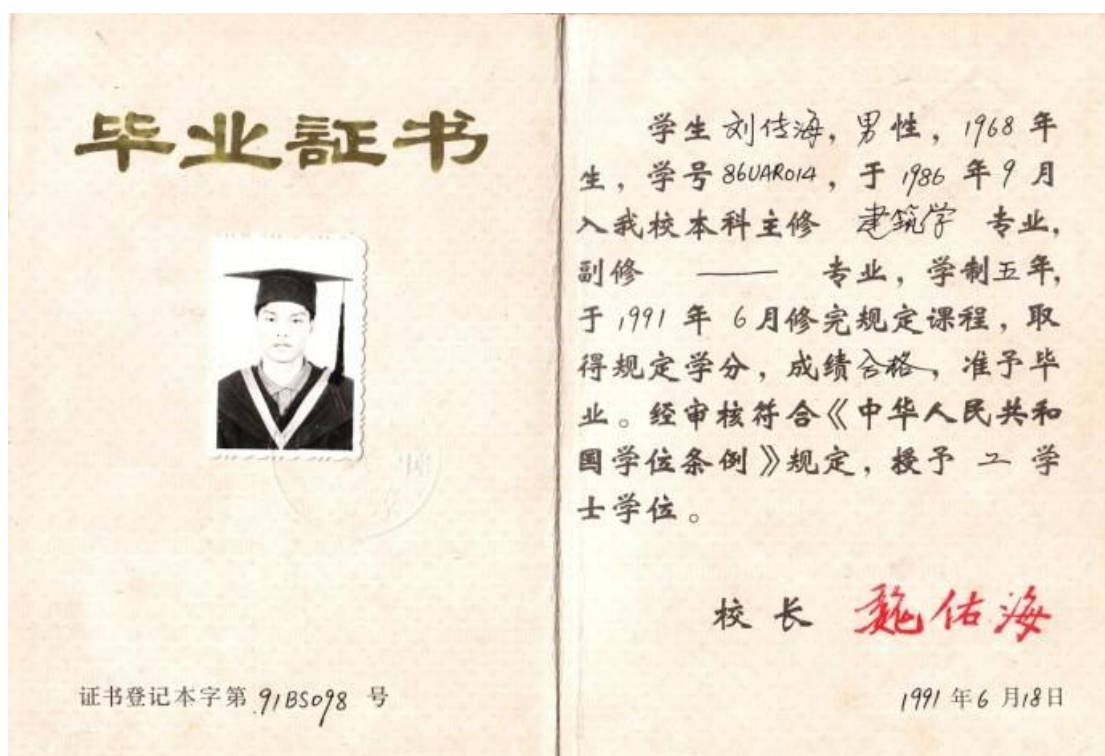 毕业証书
证书登记本字第91BS098号
学生刘传海，男性，1968年
生，学号86UAR014，于1986年9月
入我校本科主修 建筑学 专业，
副修 —— 专业，学制五年，
于1991年6月修完规定课程，取
得规定学分，成绩合格，准予毕
业。经审核符合《中华人民共和
国学位条例》规定，授予 工 学
士学位。
校长 魏佑海
1991年6月18日